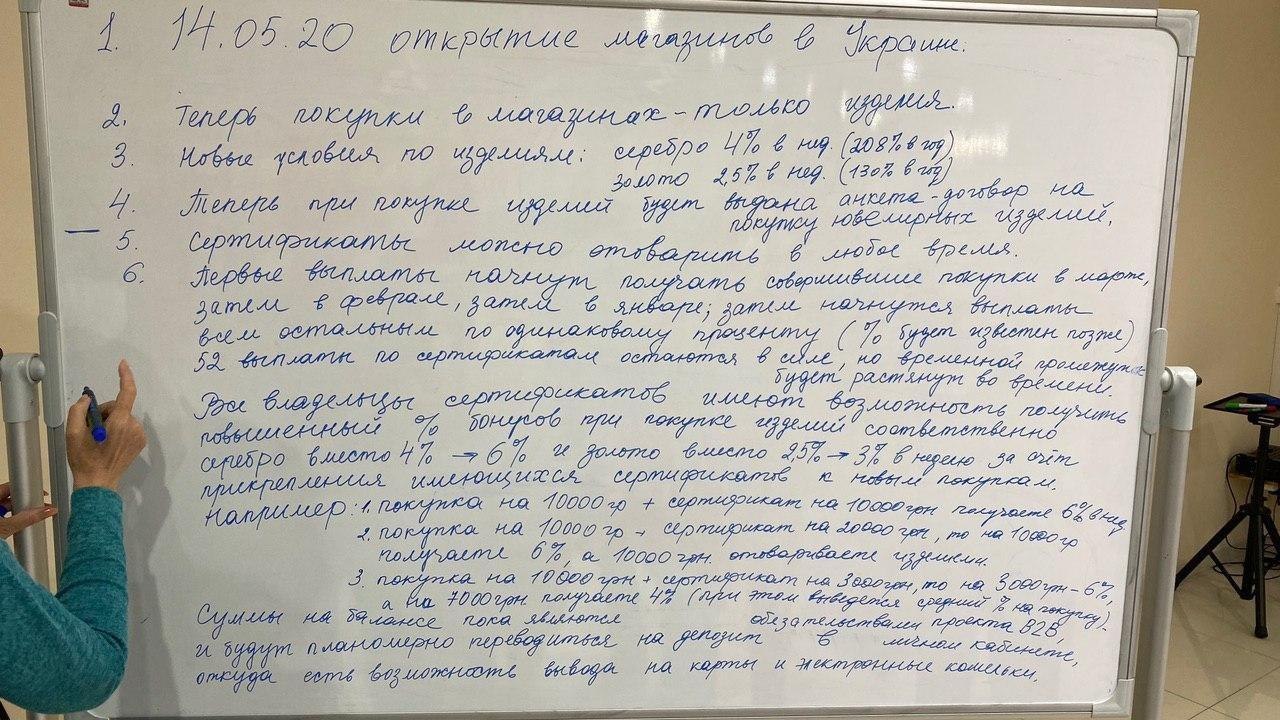 1. 14.05.20 открытие магазинов в Украине.
2. Теперь покупки в магазинах - только изделия.
3. Новые условия по изделиям: серебро 4% в нед. (208% в год)
золото 2,5% в нед. (130% в год)
4. Теперь при покупке изделий будет выдана анкета-договор на
покупку ювелирных изделий.
5. Сертификаты можно отоварить в любое время.
6. Первые выплаты начнут получать совершившие покупки в марте,
затем в феврале, затем в январе; затем начнутся выплаты
всем остальным по одинаковому проценту (% будет известен позже)
52 выплаты по сертификатам остаются в силе, но временной промежуток
будет растянут во времени.
Все владельцы сертификатов имеют возможность получить
повышенный % бонусов при покупке изделий соответственно
серебро вместо 4% → 6% и золото вместо 2,5% → 3% в неделю за счёт
прикрепления имеющихся сертификатов к новым покупкам.
Например: 1. покупка на 10000 гр + сертификат на 10000 грн получаете 6% в нед
2. покупка на 10000 гр + сертификат на 20000 грн, то на 10000 гр
получаете 6%, а 10000 грн. отовариваете изделием.
3. покупка на 10000 грн + сертификат на 3000 грн, то на 3000 грн - 6%,
а на 7000 грн получаете 4% (при этом выведется средний % на покупку).
Суммы на балансе пока являются обязательствами проекта B2B
и будут планомерно переводиться на депозит в личном кабинете,
откуда есть возможность вывода на карты и электронные кошельки.